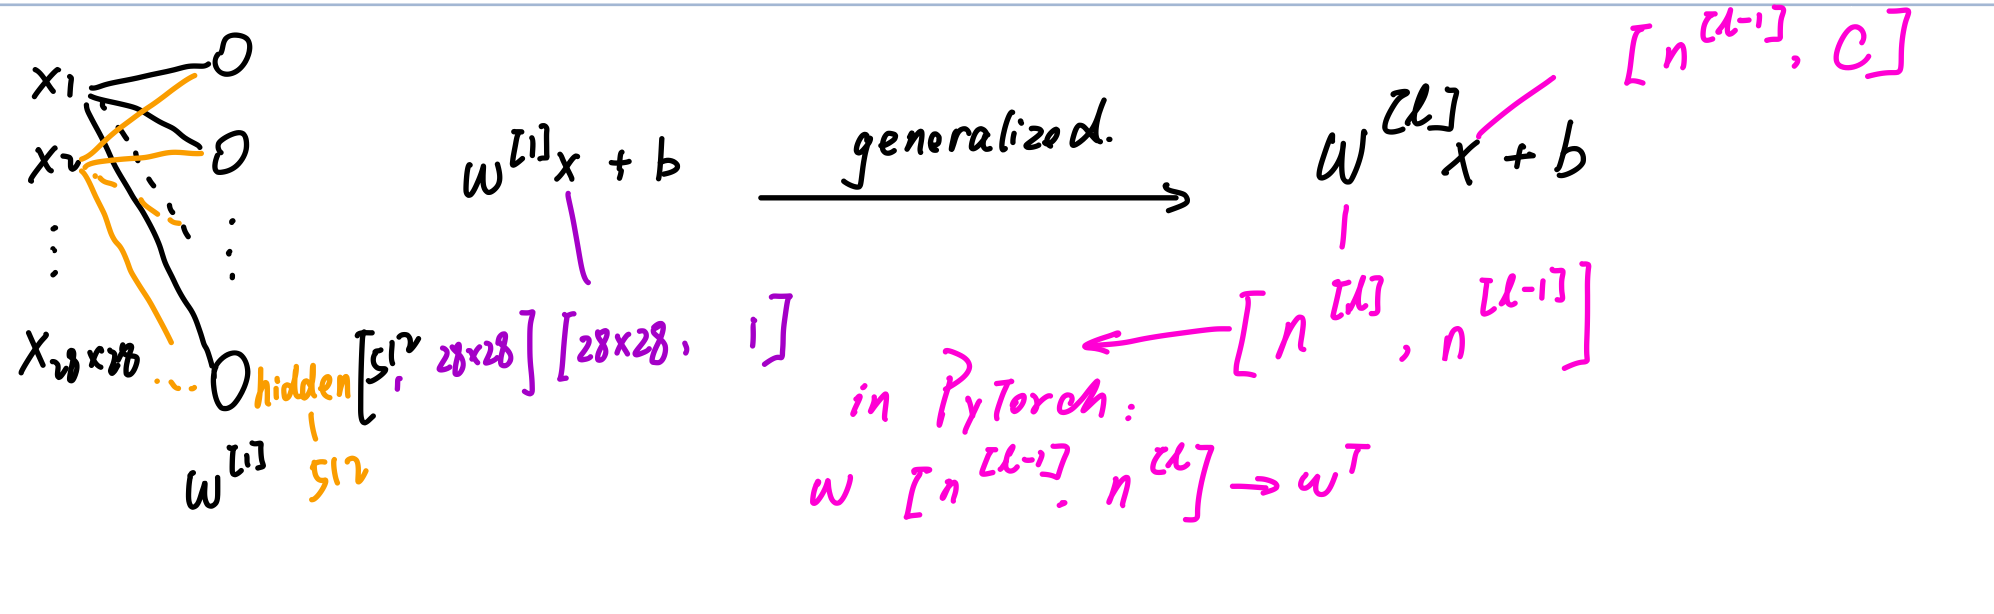 x1
x2
⋮
x28×28
w[1]
hidden
512
w[1]x + b
[512, 28×28] [28×28, 1]
generalized.
w[l]x + b
[n[l-1], C]
[n[l], n[l-1]]
in PyTorch:
w [n[l-1], n[l]] → wT